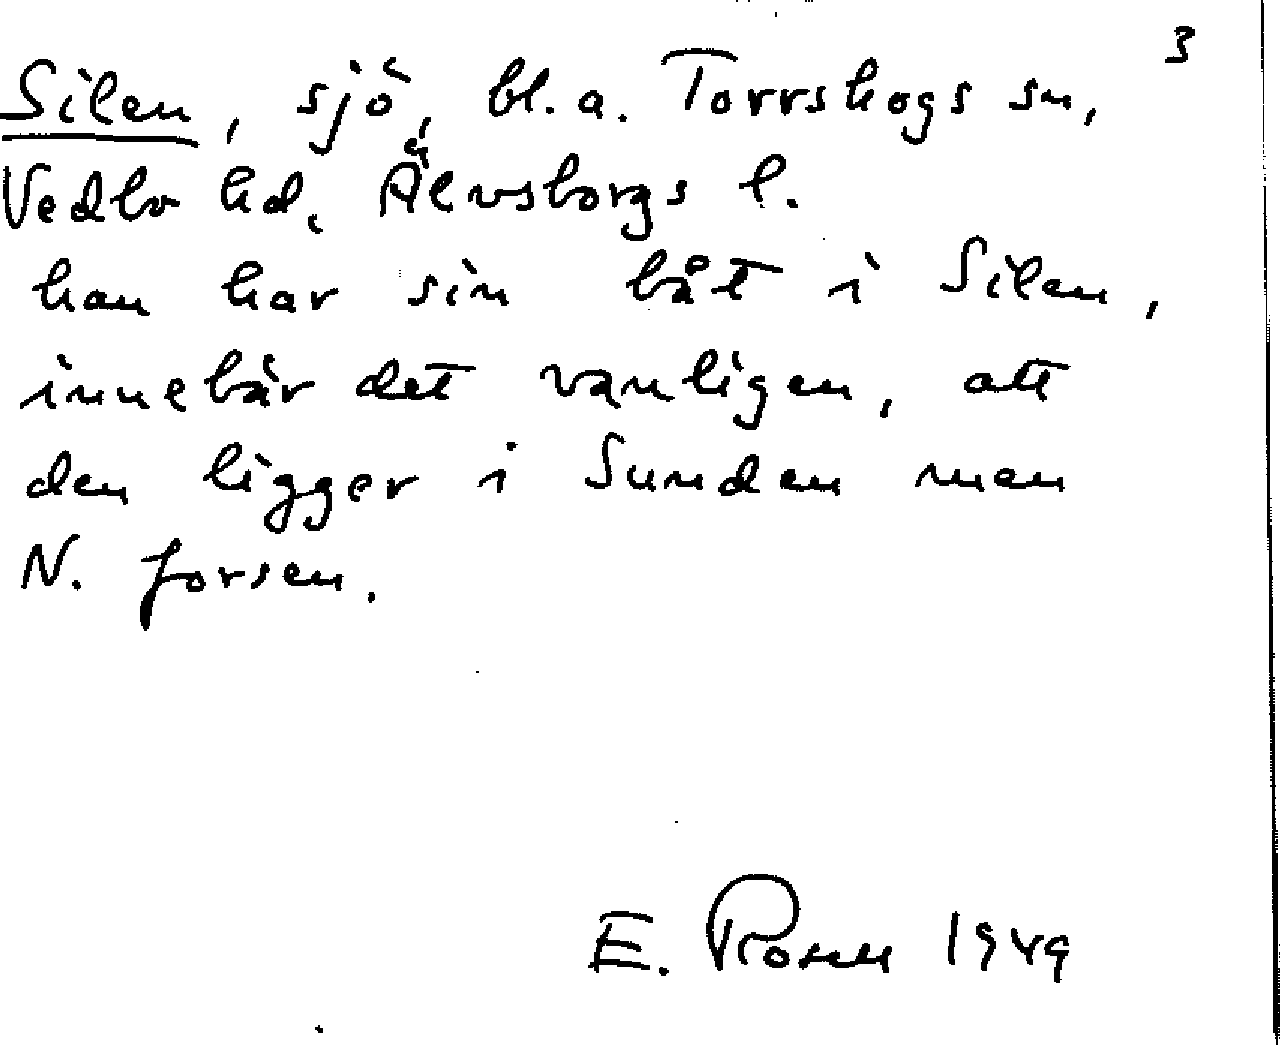 3
Silen, sjö, bl.a. Torrskogs sn,
Vedbo hd, Älvsborgs l.
han har sin båt i Silen,
innebär det vanligen, att
den ligger i Sunden men
N. forsen.
E. Rosell 1949